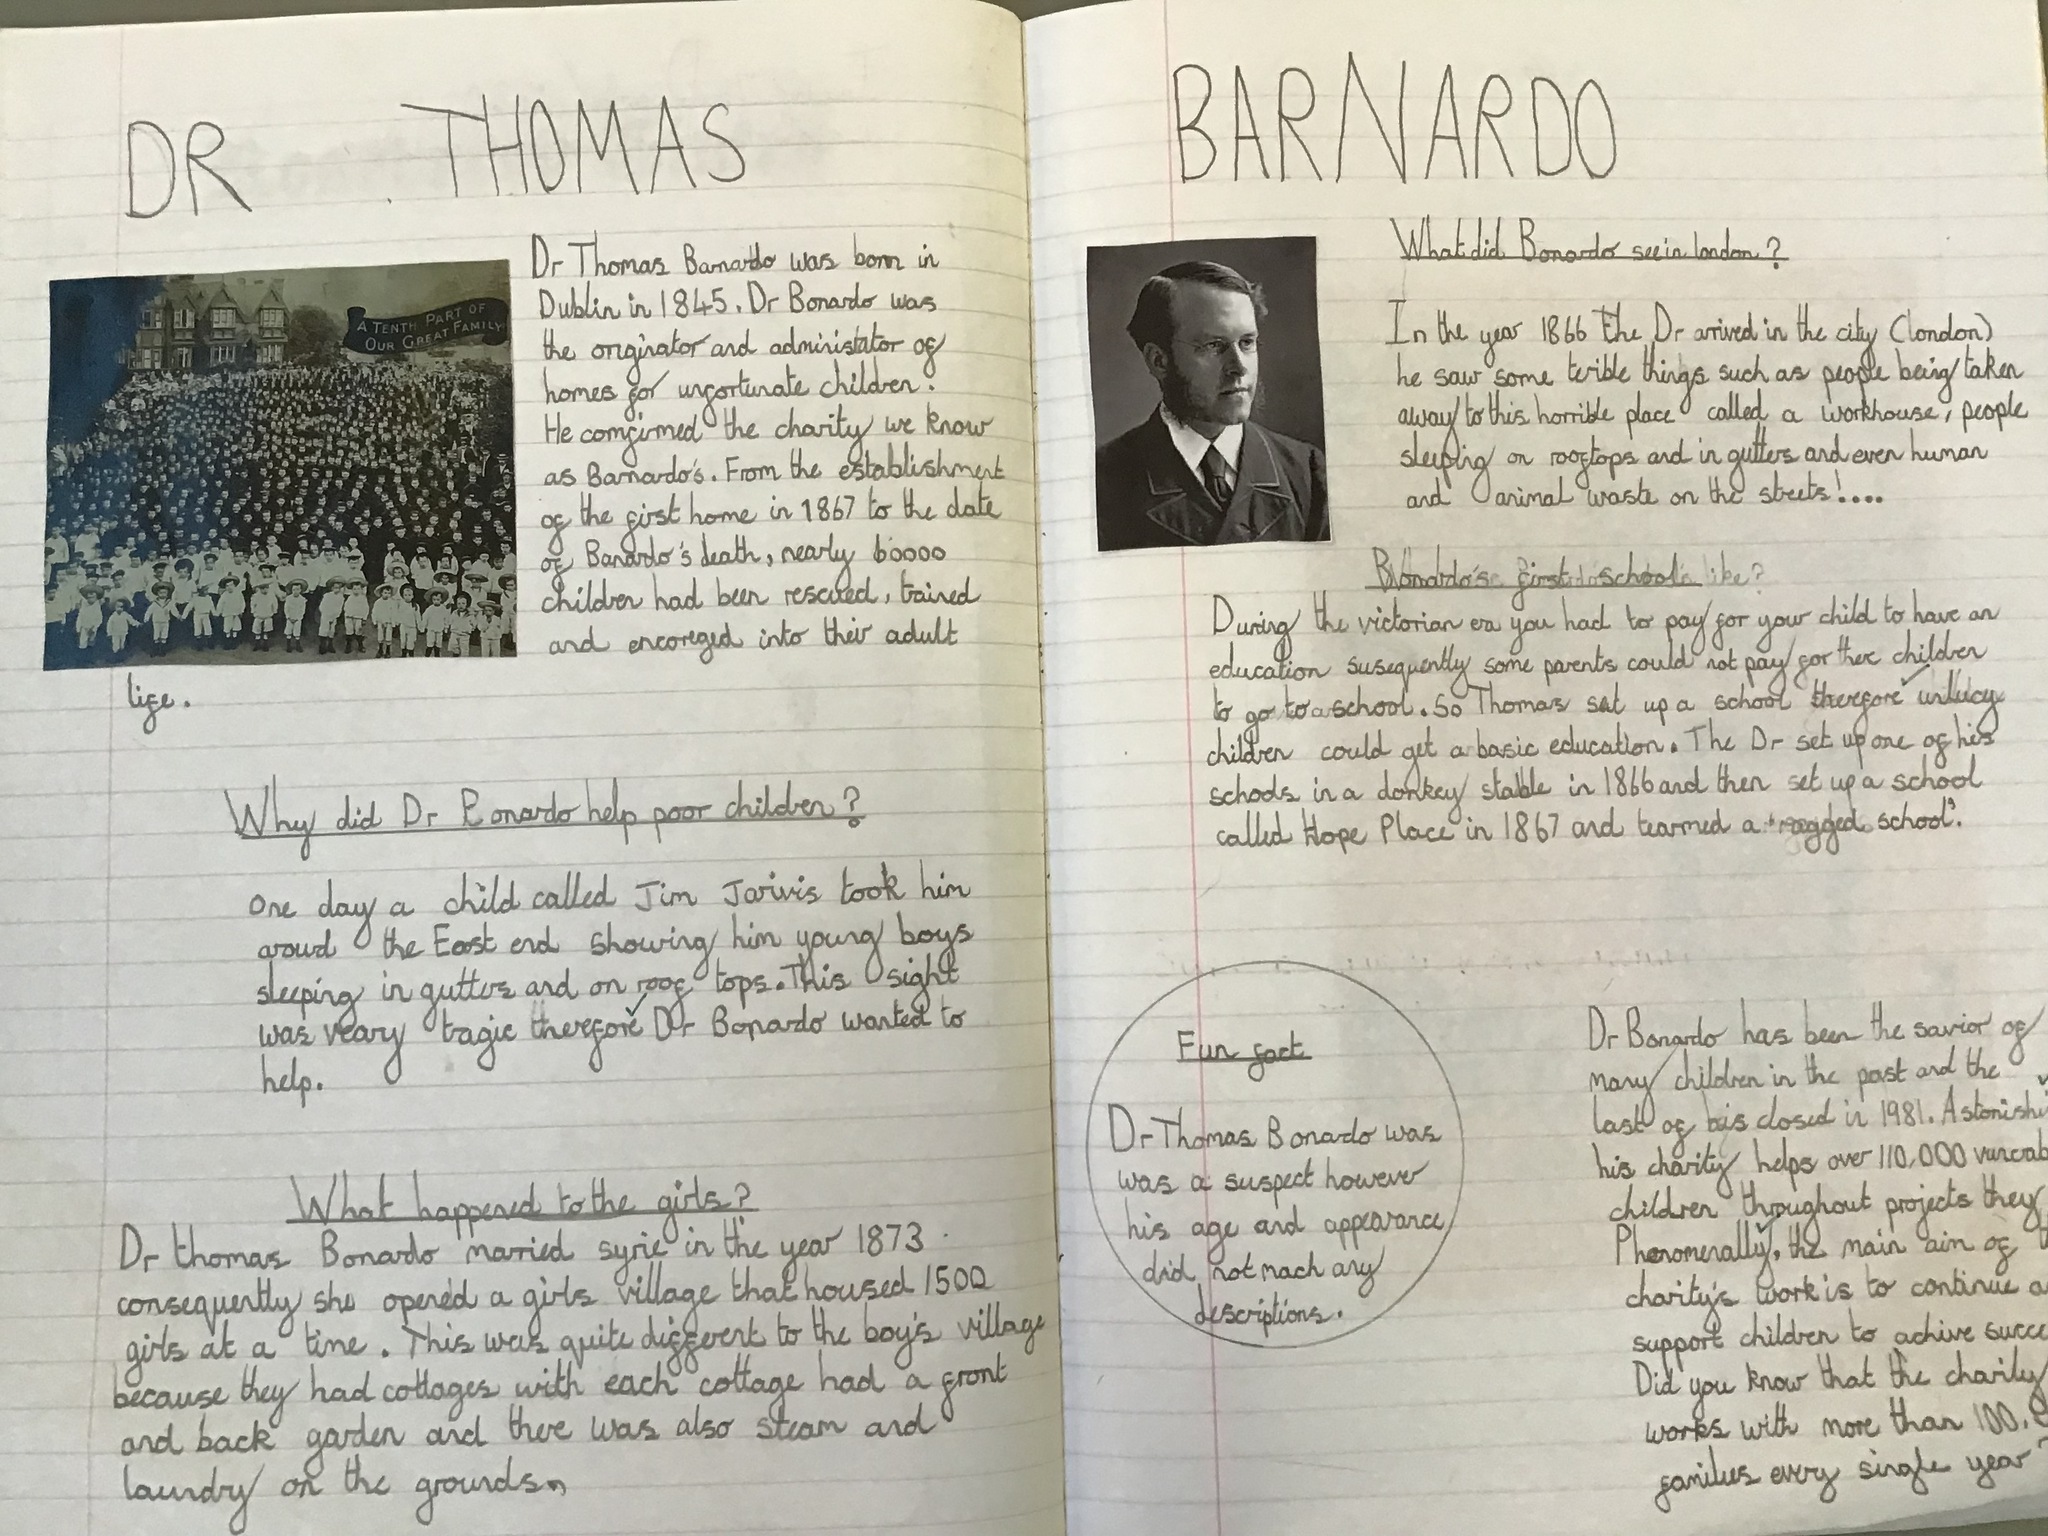 DR THOMAS BARNARDO
A TENTH PART OF
OUR GREAT FAMILY
Dr Thomas Barnardo was born in
Dublin in 1845. Dr Bonardo was
the originator and administator of
homes for unfortunate children.
He comfirmed the charity we know
as Barnardo's. From the establishment
of the first home in 1867 to the date
of Banardo's death, nearly 60000
children had been rescued, trained
and encoreged into their adult
life.
Why did Dr Bonardo help poor children?
One day a child called Jim Jarivis took him
aroud the East end showing him young boys
sleeping in gutters and on roof tops. This sight
was veary tragic therefore Dr Bonardo wanted to
help.
What happened to the girls?
Dr thomas Bonardo married syrie in the year 1873
consequently she opened a girls village that housed 1500
girls at a time. This was quite different to the boy's village
because they had cottages with each cottage had a front
and back garden and there was also steam and
laundry on the grounds.
What did Bonardo see in london?
In the year 1866 the Dr arrived in the city (london)
he saw some terible things such as people being taken
away to this horrible place called a workhouse, people
sleeping on rooftops and in gutters and even human
and animal waste on the streets!....
Bonardo's first school like?
During the victorian era you had to pay for your child to have an
education susequently some parents could not pay for there children
to go to a school. So Thomas set up a school therefore unlucky
children could get a basic education. The Dr set up one of his
schools in a donkey stable in 1866 and then set up a school
called Hope Place in 1867 and tearmed a 'ragged school'.
Fun fact
Dr Thomas Bonardo was
was a suspect however
his age and appearance
did not mach any
descriptions.
Dr Bonardo has been the savior of
many children in the past and the
last of closed in 1981. Astonishi
his charity helps over 110,000
children throughout projects they
Phenomenally, the main aim of
charity's work is to continue
support children to achive succe
Did you know that the charity
works with more than 100.
families every single year?